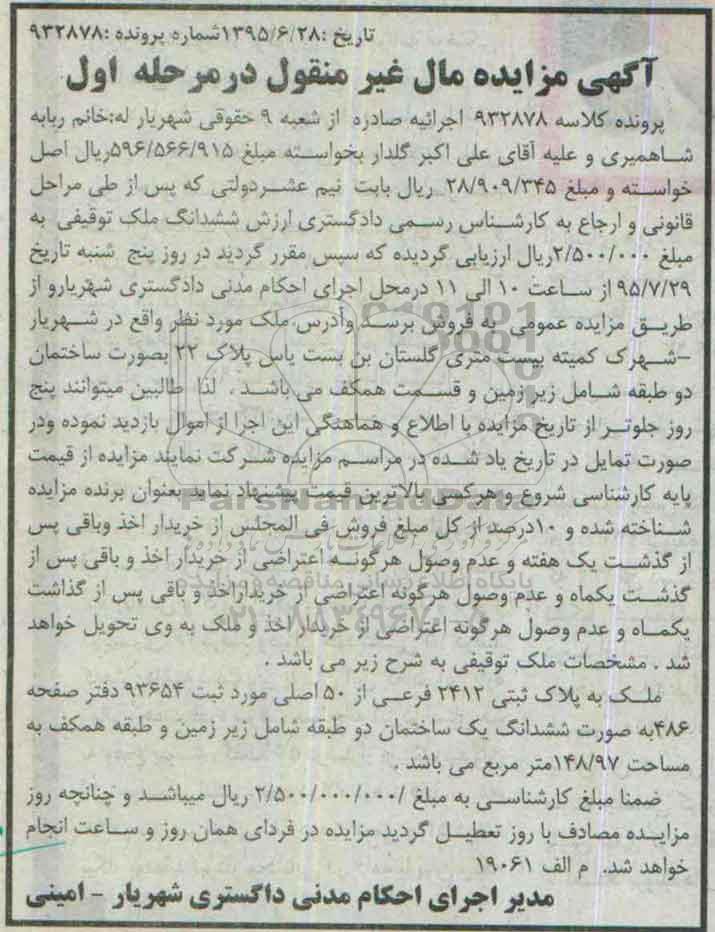 تاریخ :۱۳۹۵/۶/۲۸شماره پرونده :۹۳۲۸۷۸
آگهی مزایده مال غیر منقول درمرحله اول
پرونده کلاسه ۹۳۲۸۷۸ اجرائیه صادره از شعبه ۹ حقوقی شهریار له:خانم ربابه
شاهمیری و علیه آقای علی اکبر گلدار بخواسته مبلغ ۵۹۶/۵۶۶/۹۱۵ریال اصل
خواسته و مبلغ ۲۸/۹۰۹/۳۴۵ ریال بابت نیم عشردولتی که پس از طی مراحل
قانونی و ارجاع به کارشناس رسمی دادگستری ارزش ششدانگ ملک توقیفی به
مبلغ ۲/۵۰۰/۰۰۰ریال ارزیابی گردیده که سپس مقرر گردید در روز پنج شنبه تاریخ
۹۵/۷/۲۹ از ساعت ۱۰ الی ۱۱ درمحل اجرای احکام مدنی دادگستری شهریارو از
طریق مزایده عمومی به فروش برسد وآدرس ملک مورد نظر واقع در شهریار
-شهرک کمیته بیست متری گلستان بن بست یاس پلاک ۲۲ بصورت ساختمان
دو طبقه شامل زیر زمین و قسمت همکف می باشد . لذا طالبین میتوانند پنج
روز جلوتر از تاریخ مزایده با اطلاع و هماهنگی این اجرا از اموال بازدید نموده ودر
صورت تمایل در تاریخ یاد شده در مراسم مزایده شرکت نمایند مزایده از قیمت
پایه کارشناسی شروع و هرکسی بالاترین قیمت پیشنهاد نماید بعنوان برنده مزایده
شناخته شده و ۱۰درصد از کل مبلغ فروش فی المجلس از خریدار اخذ وباقی پس
از گذشت یک هفته و عدم وصول هرگونه اعتراضی از خریدار اخذ و باقی پس از
گذشت یکماه و عدم وصول هرگونه اعتراضی از خریداراخذ و باقی پس از گذاشت
یکماه و عدم وصول هرگونه اعتراضی از خریدار اخذ و ملک به وی تحویل خواهد
شد . مشخصات ملک توقیفی به شرح زیر می باشد .
ملک به پلاک ثبتی ۲۴۱۲ فرعی از ۵۰ اصلی مورد ثبت ۹۳۶۵۴ دفتر صفحه
۴۸۶به صورت ششدانگ یک ساختمان دو طبقه شامل زیر زمین و طبقه همکف به
مساحت ۱۴۸/۹۷متر مربع می باشد .
ضمنا مبلغ کارشناسی به مبلغ /۲/۵۰۰/۰۰۰/۰۰۰ ریال میباشد و چنانچه روز
مزایده مصادف با روز تعطیل گردید مزایده در فردای همان روز و ساعت انجام
خواهد شد. م الف ۱۹۰۶۱
مدیر اجرای احکام مدنی داگستری شهریار - امینی
ParsNamadData
پایگاه اطلاع رسانی مناقصه و مزایده